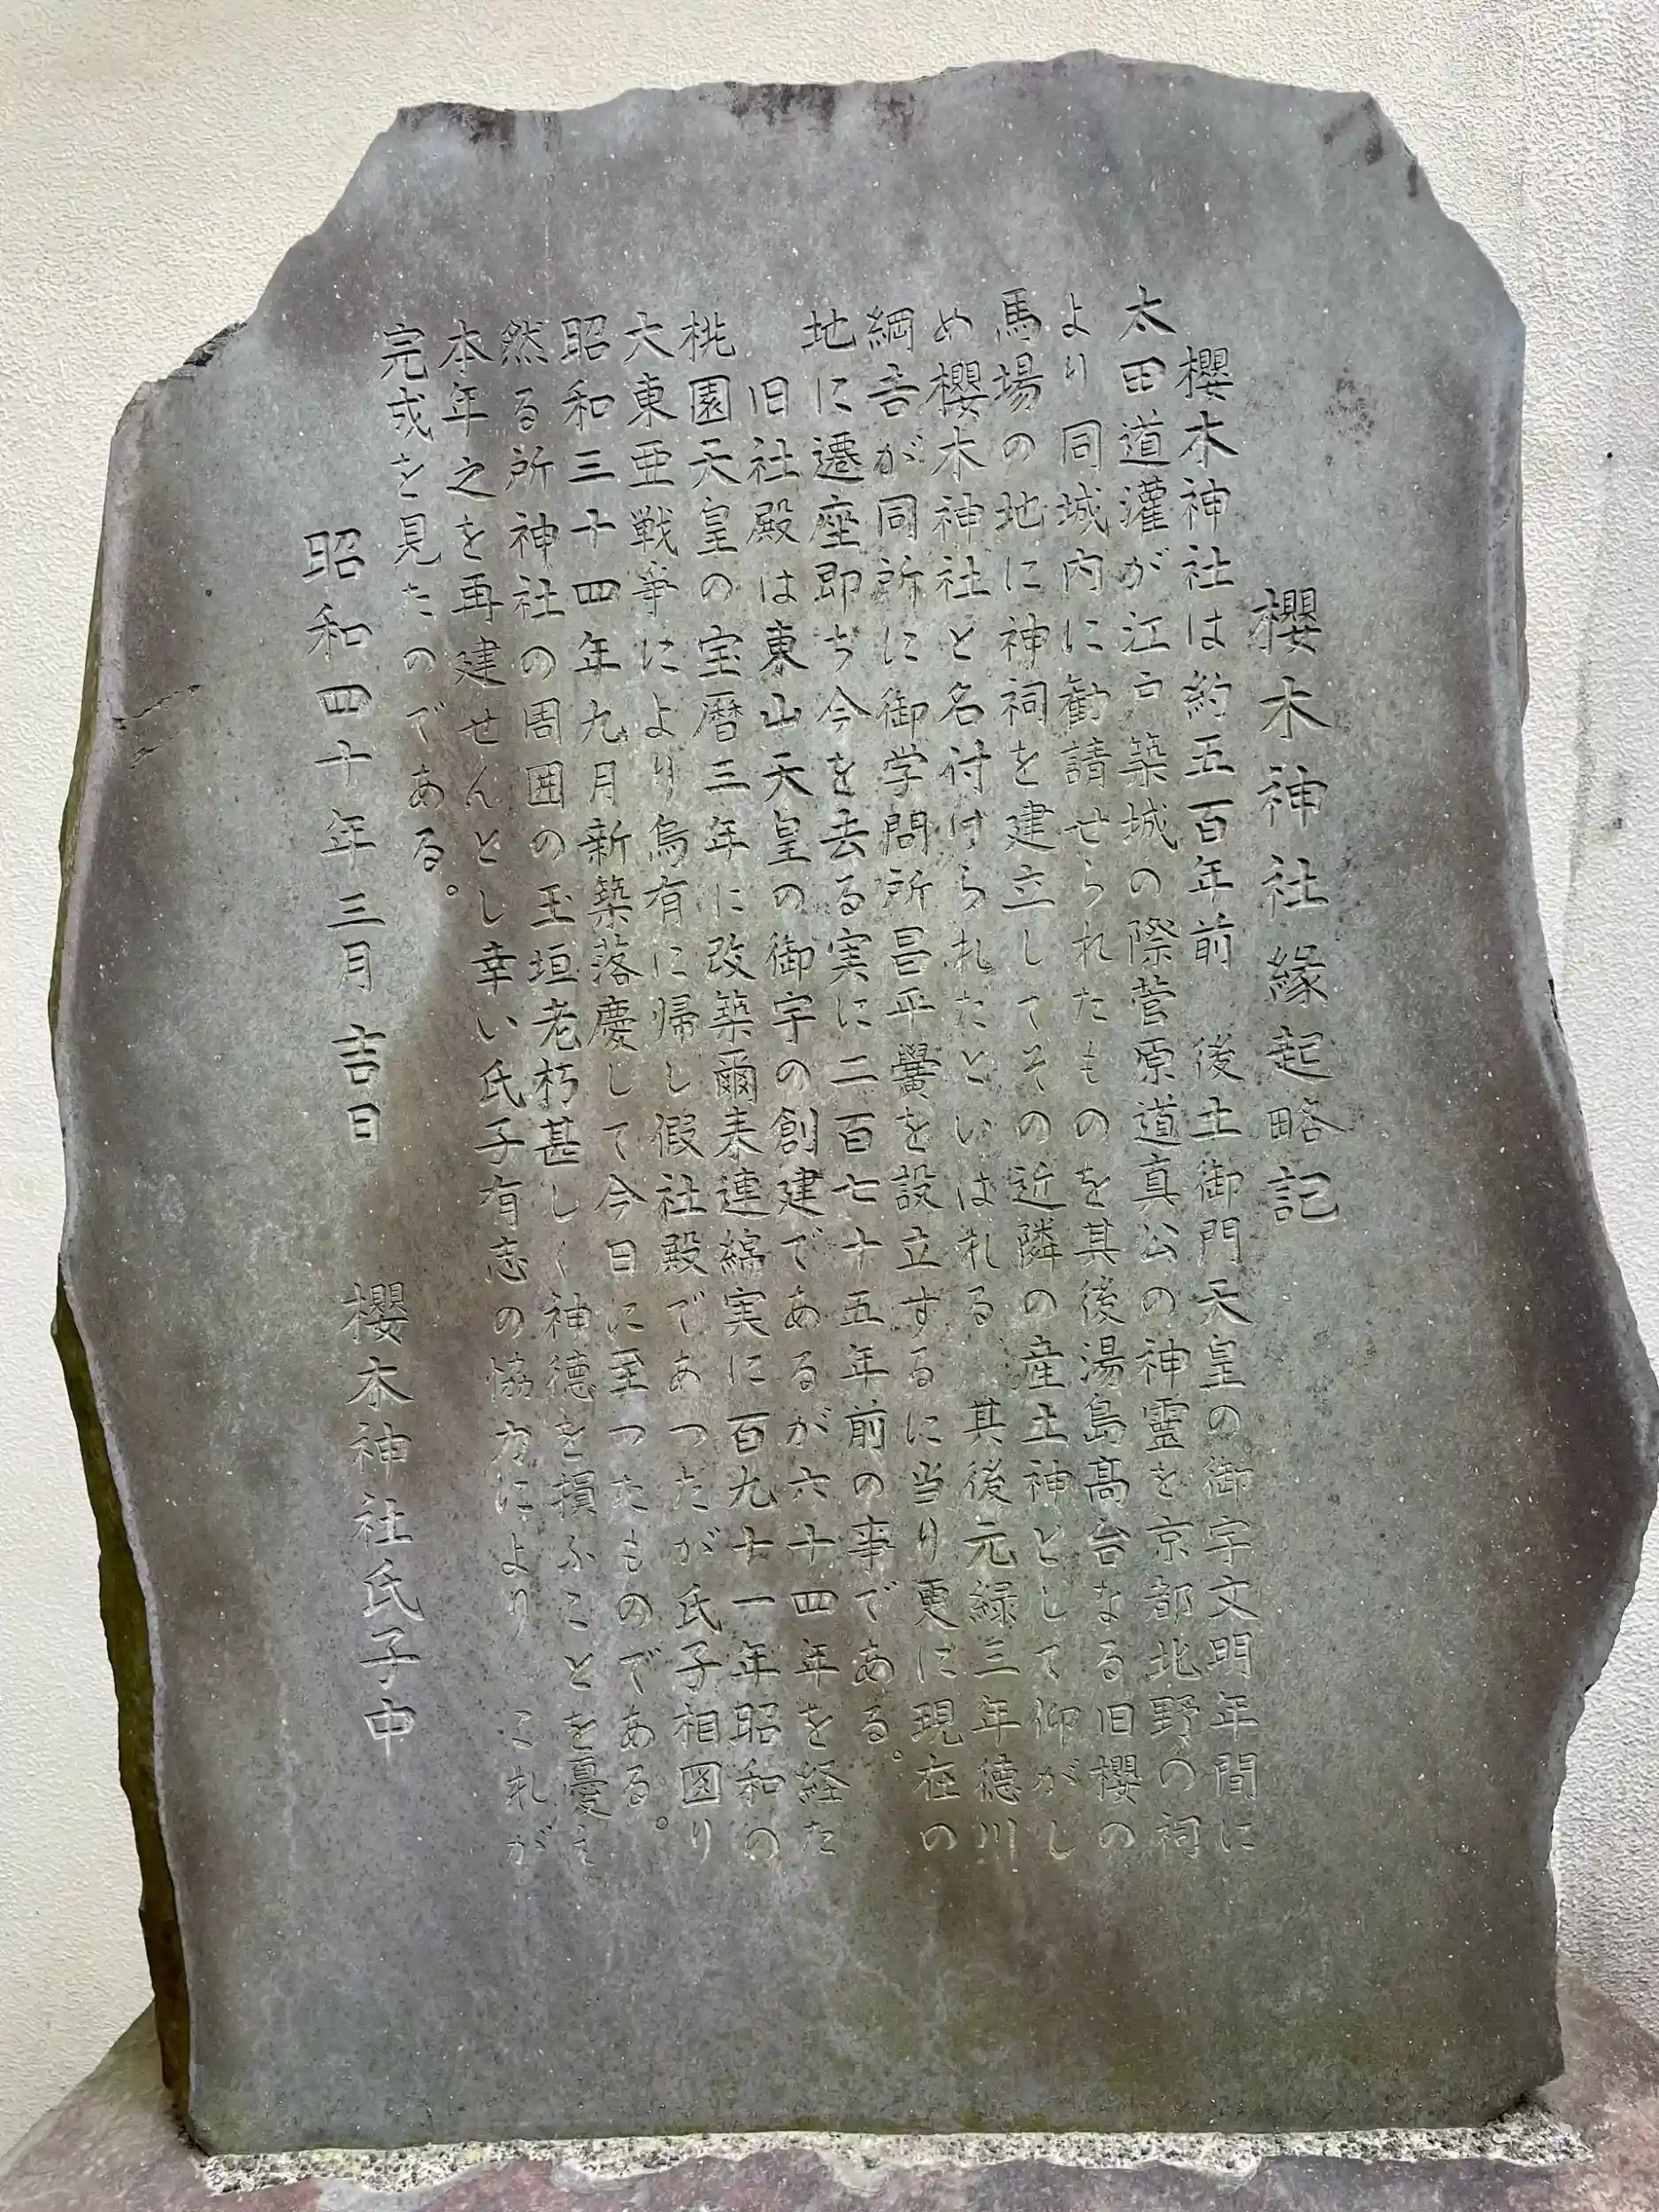 櫻木神社縁起略記
櫻木神社は約五百年前 後土御門天皇の御宇文明年間に
太田道灌が江戸築城の際菅原道真公の神霊を京都北野の祠
より同城内に勧請せられたものを其後湯島髙台なる旧櫻の
馬場の地に神祠を建立してその近隣の産土神として仰がし
め櫻木神社と名付けられたといはれる 其後元緑三年徳川
綱吉が同所に御学問所昌平黌を設立するに当り更に現在の
地に遷座即ち今を去る実に二百七十五年前の事である。
旧社殿は東山天皇の御宇の創建であるが六十四年を経た
桃園天皇の宝暦三年に改築爾来連綿実に百九十一年昭和の
大東亜戦争により烏有に帰し假社殿であつたが氏子相図り
昭和三十四年九月新築落慶して今日に至つたものである。
然る所神社の周囲の玉垣老朽甚しく神徳を損ふことを憂え
本年之を再建せんとし幸い氏子有志の協力により これが
完成を見たのである。
昭和四十年三月吉日 櫻木神社氏子中